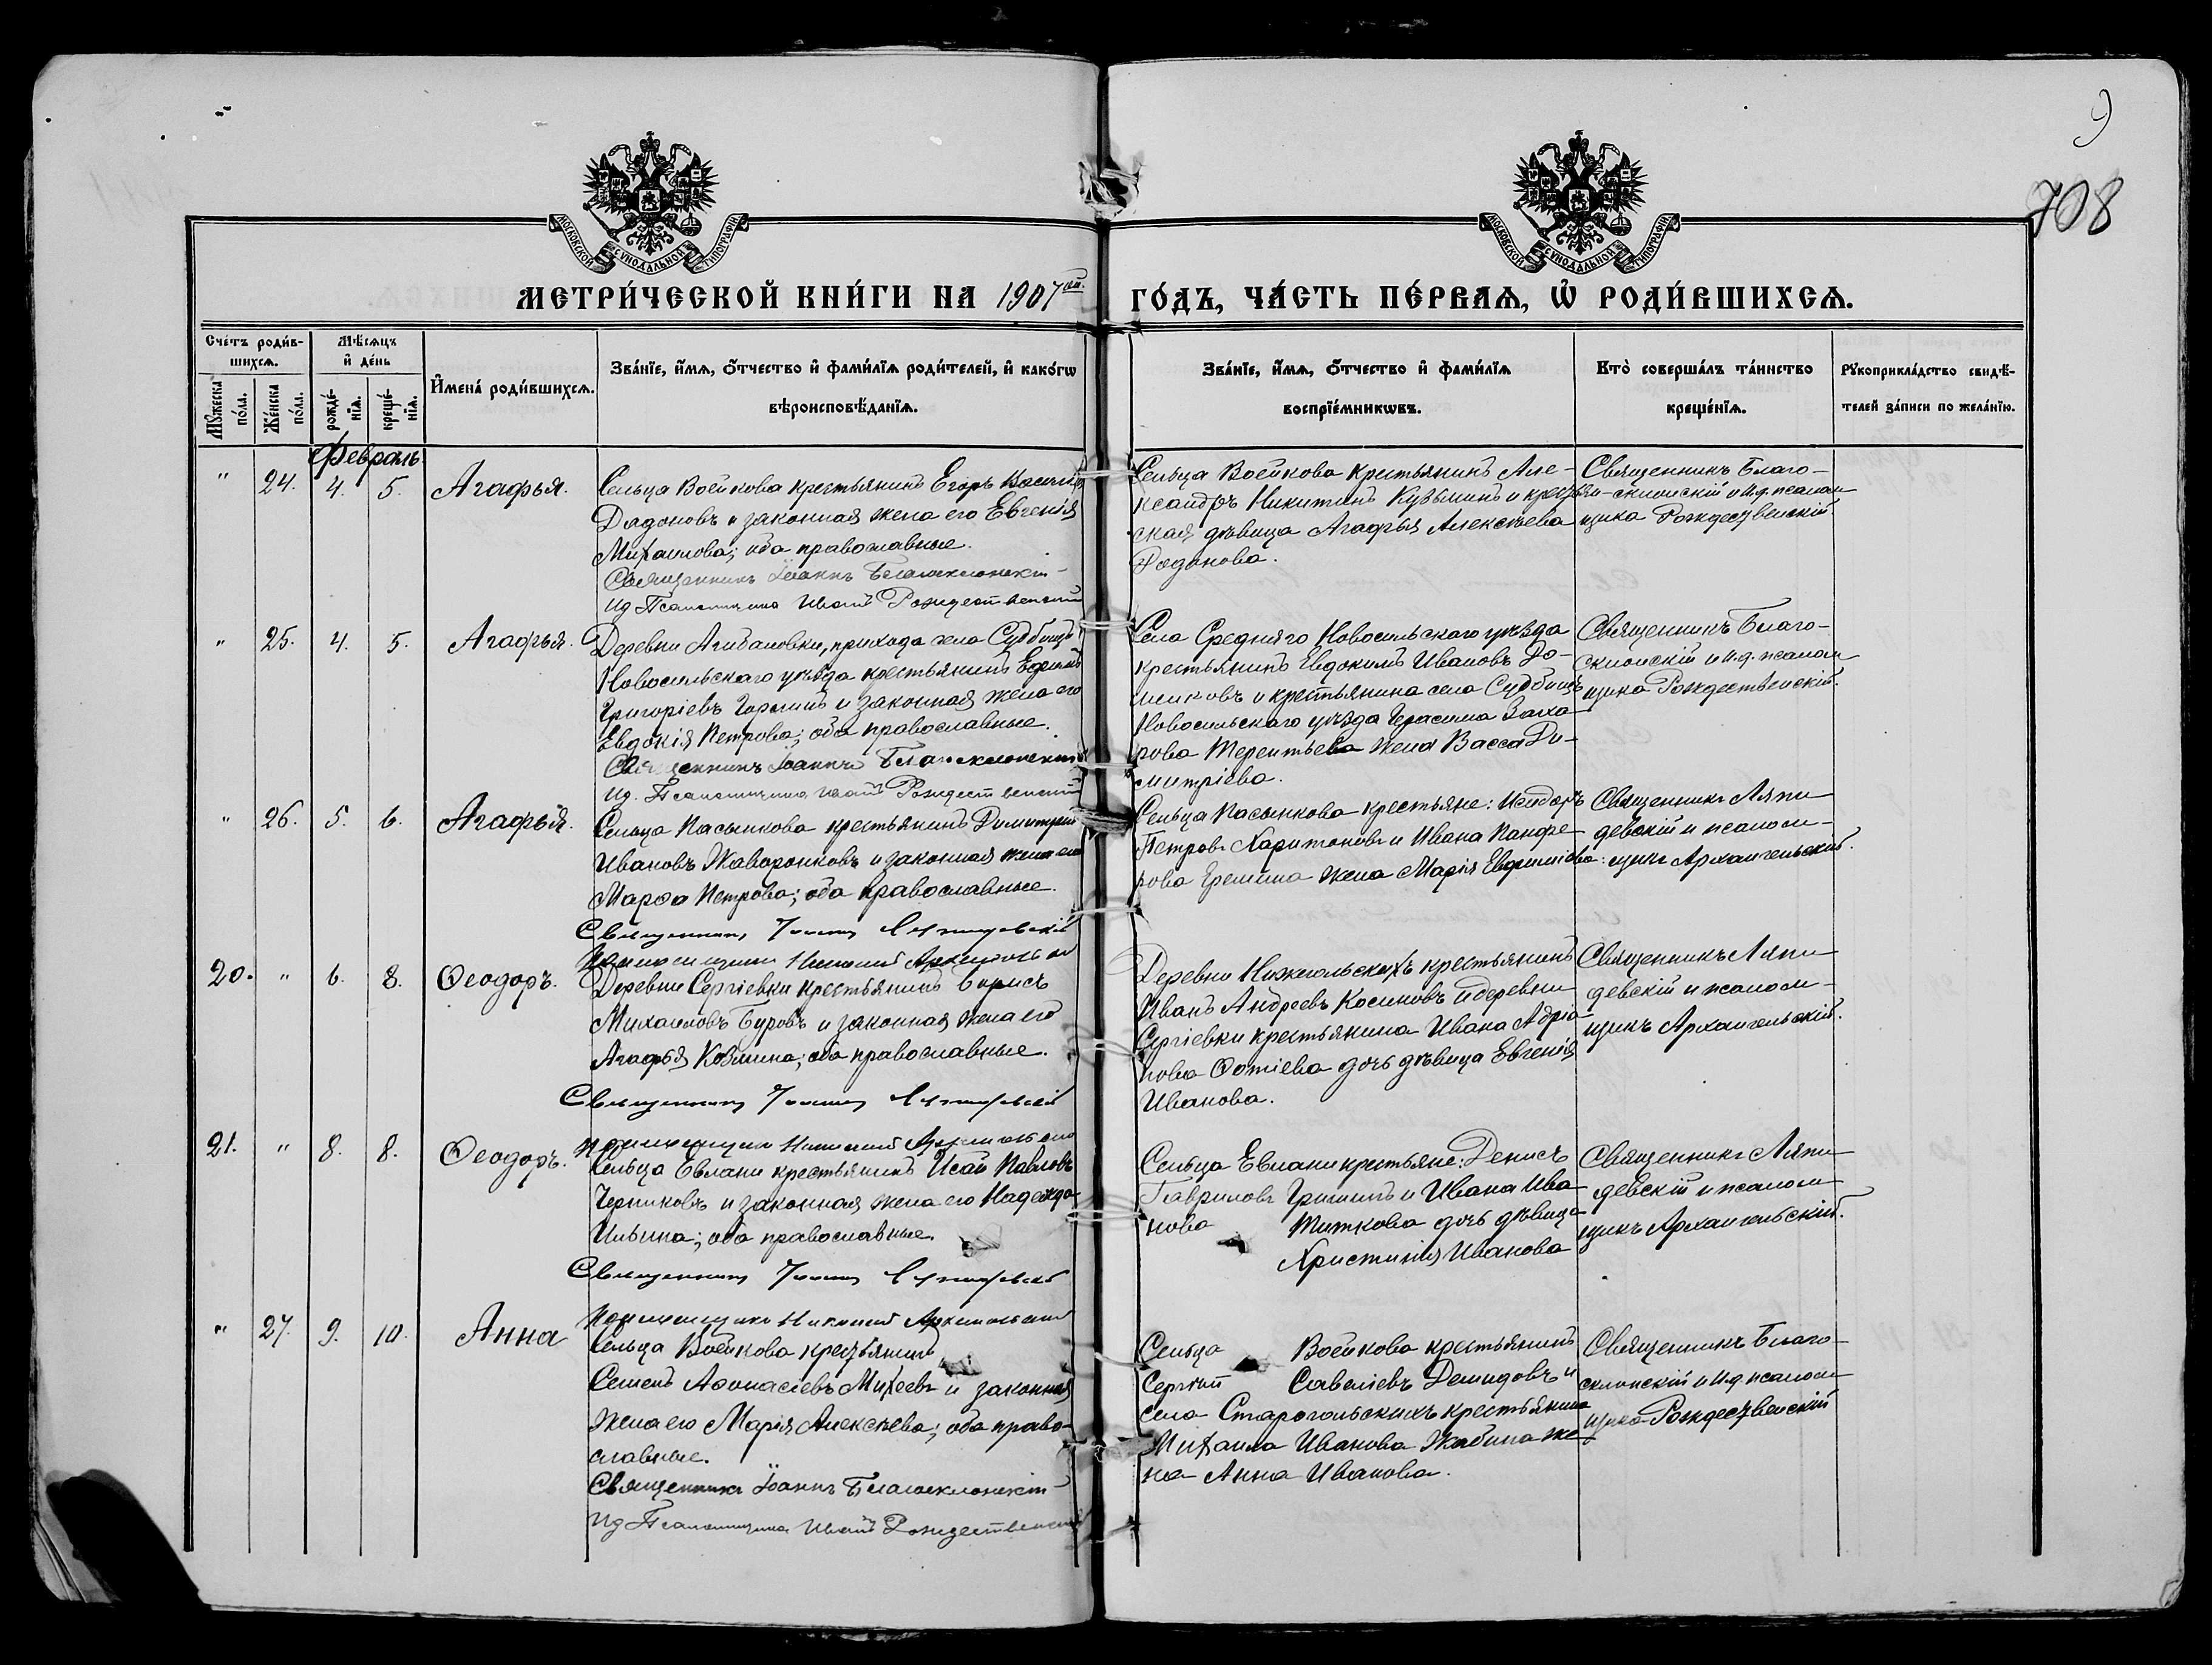 9
708
МОСКОВСКОЙ СѴНОДАЛЬНОЙ ТИПОГРАФІИ
МОСКОВСКОЙ СѴНОДАЛЬНОЙ ТИПОГРАФІИ
МЕТРИ́ЧЕСКОЙ КНИ́ГИ НА 1907 ой.
ГО́ДЪ, ЧА́СТЬ ПЕ́РВАѦ, Ѡ҆ РОДИ́ВШИХСѦ.
Сче́тъ роди́в-
шихсѧ.
Мѣ́сѧцъ
и҆ де́нь
Мꙋ́жеска по́ла.
Же́нска по́ла.
рожде́-нїѧ.
креще́-нїѧ.
И҆мена̀ роди́вшихсѧ.
Зва́нїе, и҆́мѧ, ѻ҆́тчество и҆ фами́лїѧ роди́телей, и҆ како́гѡ
вѣроисповѣ́данїѧ.
Зва́нїе, и҆́мѧ, ѻ҆́тчество и҆ фами́лїѧ
воспрїе́мникѡвъ.
Кто̀ соверша́лъ та́инство
креще́нїѧ.
Рꙋкоприкла́дство свидѣ́-
телей за́писи по жела́нїю.
Февраль
" 24. 4. 5. Агафья.
Сельца Воейкова крестьянинъ Егоръ
Дадоновъ и законная жена его Евгенія
Михаилова; оба православные.
Священникъ Іоаннъ Благосклонскій
Ид Псаломщика Иванъ Рождественскій
Сельца Воейкова крестьянинъ Але-
ксандръ Никитинъ Кузьминъ и крестьян-
ская дѣвица Агафья Алексѣева
Додонова.
Священникъ Благо-
склонскій и И.д. псалом
щика Рождественскій
" 25. 4. 5. Агафья.
Деревни прихода села Судбищъ
Новосильскаго уѣзда крестьянинъ Ефимъ
Григоріевъ и законная жена его
Евдокія Петрова; оба православные.
Священникъ Іоаннъ Благосклонскій
Ид. Псаломщика Иванъ Рождественскій
Села Средняго Новосильскаго уѣзда
крестьянинъ Евдокимъ Ивановъ До-
и крестьянина села Судбищъ
Новосильскаго уѣзда Герасима Заха-
рова Терентьева жена Васса Ди-
митріева.
Священникъ Благо-
склонскій и И.д. псалом
щика Рождественскій.
" 26. 5. 6. Агафья.
Сельца Пасынкова крестьянинъ Димитрій
Ивановъ Жаворонковъ и законная жена его
Марѳа Петрова; оба православные.
Священникъ Іоаннъ Ляпидевскій
Псаломщикъ Николай Архангельскій
Сельца Пасынкова крестьяне: Исидоръ
Петровъ Харитоновъ и Ивана Панфе-
рова Еремина жена Марія Евфиміева.
Священникъ Ляпи-
девскій и псалом-
щикъ Архангельскій.
20. " 6. 8. Ѳеодоръ.
Деревни Сергіевки крестьянинъ Борисъ
Михаиловъ Буровъ и законная жена его
Агафья Козмина; оба православные.
Священникъ Іоаннъ Ляпидевскій
Псаломщикъ Николай Архангельскій
Деревни крестьянинъ
Иванъ Андреевъ Косиновъ и деревни
Сергіевки крестьянина Ивана Адріа-
нова Ѳотіева дочь дѣвица Евгенія
Иванова.
Священникъ Ляпи-
девскій и псалом-
щикъ Архангельскій.
21. " 8. 8. Ѳеодоръ.
Сельца Евлани крестьянинъ Исай Павловъ
Черниковъ и законная жена его Надежда
Ильина; оба православные.
Священникъ Іоаннъ Ляпидевскій
Псаломщикъ Николай Архангельскій
Сельца Евлани крестьяне: Денисъ
Гавриловъ Гришинъ и Ивана Ива-
нова Титкова дочь дѣвица
Христинія Иванова
Священникъ Ляпи-
девскій и псалом-
щикъ Архангельскій.
" 27. 9. 10. Анна
Сельца Воейкова крестьянинъ
Семенъ Аѳонасіевъ Михеевъ и законная
жена его Марія Алексѣева; оба право-
славные.
Священникъ Іоаннъ Благосклонскій
Ид Псаломщика Иванъ Рождественскій
Сельца Воейкова крестьянинъ
Сергій Савеліевъ Демидовъ и
села Старогольскихъ крестьянина
Михаила Иванова Жабина же-
на Анна Иванова.
Священникъ Благо-
склонскій и И.д. псалом
щика Рождественскій